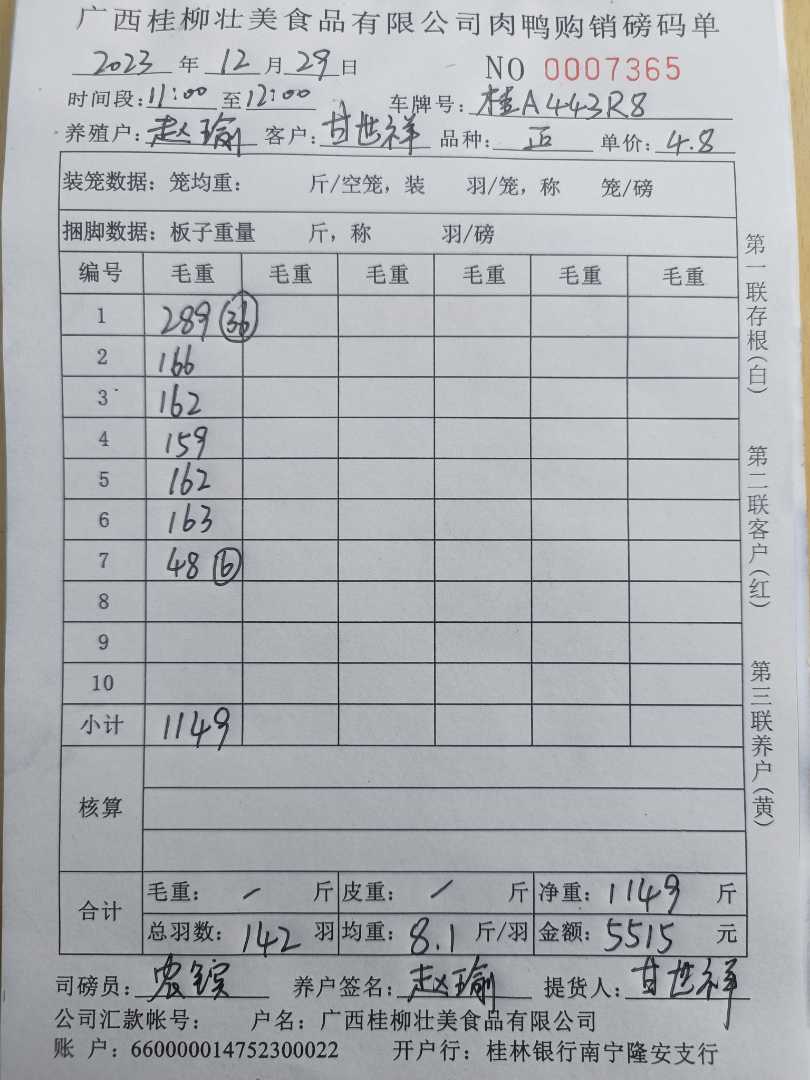 广西桂柳壮美食品有限公司肉鸭购销磅码单
2023 年 12 月 29 日 NO 0007365
时间段: 11:00 至 12:00 车牌号: 桂A443R8
养殖户: 赵瑜 客户: 甘世祥 品种: 正 单价: 4.8
装笼数据: 笼均重: 斤/空笼, 装 羽/笼, 称 笼/磅
捆脚数据: 板子重量 斤, 称 羽/磅
编号 毛重 毛重 毛重 毛重 毛重 毛重
1 289 36
2 166
3 162
4 159
5 162
6 163
7 48 6
8
9
10
小计 1149
核算
合计 毛重: / 斤 皮重: / 斤 净重: 1149 斤
总羽数: 142 羽 均重: 8.1 斤/羽 金额: 5515 元
司磅员: 养户签名: 赵瑜 提货人: 甘世祥
公司汇款帐号: 户名: 广西桂柳壮美食品有限公司
账 户: 660000014752300022 开户行: 桂林银行南宁隆安支行
第一联存根(白)
第二联客户(红)
第三联养户(黄)